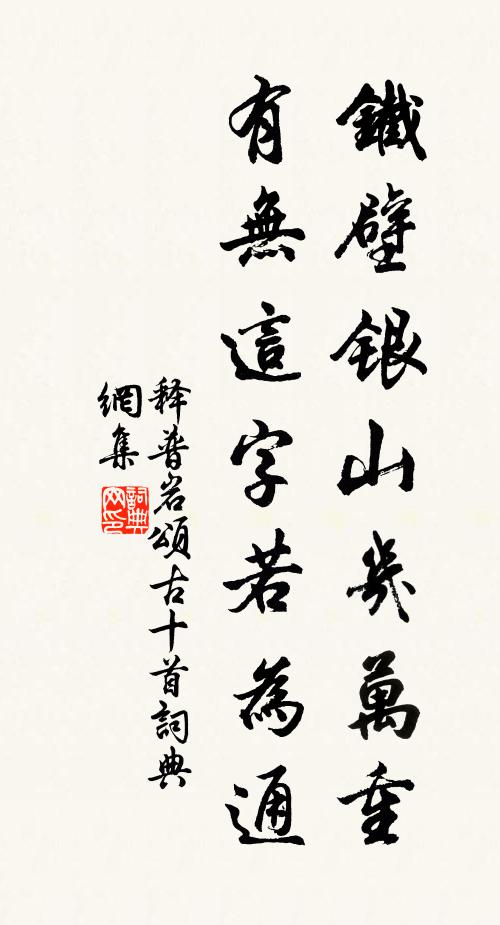 鐵壁銀山幾萬重
有無這字若為通
释普岩頌古十首詞典
網集
詞典
网印